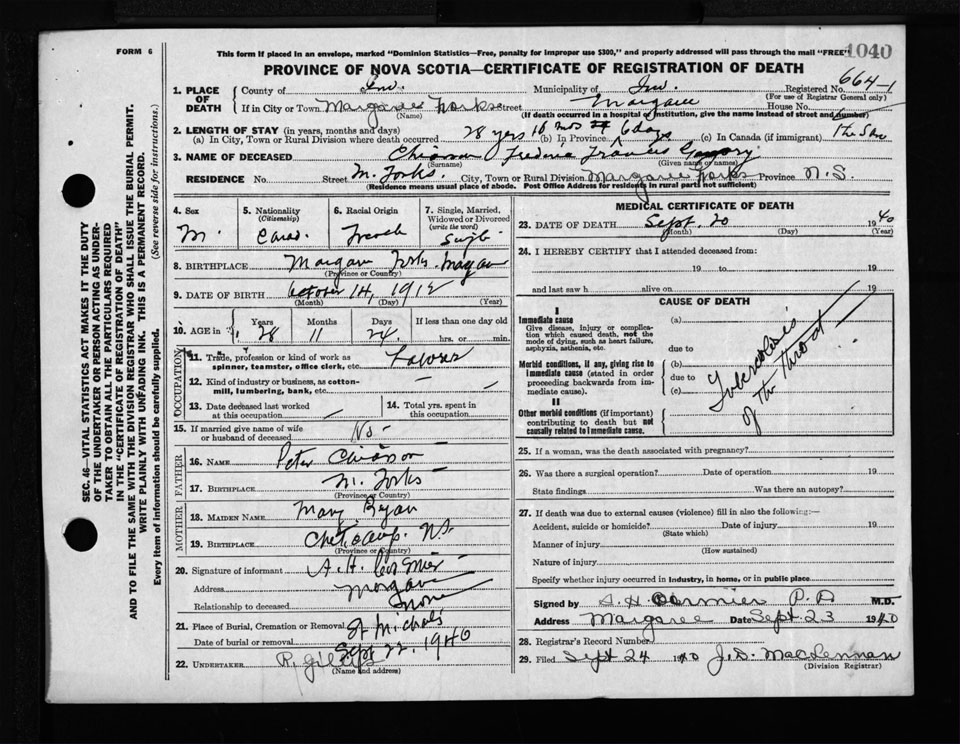 FORM 6
This form if placed in an envelope, marked "Dominion Statistics—Free, penalty for improper use $300," and properly addressed will pass through the mail "FREE"
1040
PROVINCE OF NOVA SCOTIA—CERTIFICATE OF REGISTRATION OF DEATH
1. PLACE OF DEATH
County of Inv. Municipality of Inv. Registered No. 664-1
(For use of Registrar General only)
If in City or Town Margaree Forks Street Margaree House No.
(Name) (If death occurred in a hospital or institution, give the name instead of street and number)
2. LENGTH OF STAY (in years, months and days)
(a) In City, Town or Rural Division where death occurred 28 yers 10 mos 6 days (b) In Province (c) In Canada (if immigrant) The Same
3. NAME OF DECEASED Chiasson Frederic Francis Gregory
(Surname) (Given name or names)
RESIDENCE No. Street M. Forks City, Town or Rural Division Margaree Forks Province N.S.
(Residence means usual place of abode. Post Office Address for residents in rural parts not sufficient)
4. Sex M.
5. Nationality (Citizenship) Canad.
6. Racial Origin French
7. Single, Married, Widowed or Divorced (write the word) Single
8. BIRTHPLACE Margaree Forks Margaree
(Province or Country)
9. DATE OF BIRTH October 14, 1912
(Month) (Day) (Year)
10. AGE in Years 28 Months 11 Days 24 If less than one day old hrs. or min.
OCCUPATION
11. Trade, profession or kind of work as spinner, teamster, office clerk, etc. Labour
12. Kind of industry or business, as cotton-mill, lumbering, bank, etc. —
13. Date deceased last worked at this occupation
14. Total yrs. spent in this occupation
15. If married give name of wife or husband of deceased No -
FATHER
16. NAME Peter Chiasson
17. BIRTHPLACE M. Forks
(Province or Country)
MOTHER
18. MAIDEN NAME Mary Ryan
19. BIRTHPLACE Cheticamp. NS.
(Province or Country)
20. Signature of informant A. H. Cormier
Address Margaree
Relationship to deceased None
21. Place of Burial, Cremation or Removal St Michals
Date of burial or removal Sept 22. 1940
22. UNDERTAKER R. Gillis
(Name and address)
MEDICAL CERTIFICATE OF DEATH
23. DATE OF DEATH Sept. 20 1940
(Month) (Day) (Year)
24. I HEREBY CERTIFY that I attended deceased from:
19 to 19
and last saw h alive on 19
CAUSE OF DEATH
I
Immediate cause
Give disease, injury or complication which caused death, not the mode of dying, such as heart failure, asphyxia, asthenia, etc.
(a)
due to
Morbid conditions, if any, giving rise to immediate cause (stated in order proceeding backwards from immediate cause).
(b)
due to
(c)
II
Other morbid conditions (if important) contributing to death but not causally related to immediate cause.
Tuberculosis
of the throat
25. If a woman, was the death associated with pregnancy?
26. Was there a surgical operation? Date of operation 19
State findings Was there an autopsy?
27. If death was due to external causes (violence) fill in also the following:—
Accident, suicide or homicide? Date of injury 19
(State which)
Manner of injury
(How sustained)
Nature of injury
Specify whether injury occurred in industry, in home, or in public place
Signed by A. H. Cormier P.D M.D.
Address Margaree Date Sept 23 1940
28. Registrar's Record Number
29. Filed Sept 24 1940 J. D. MacLennan
(Division Registrar)
SEC. 46—VITAL STATISTICS ACT MAKES IT THE DUTY
OF THE UNDERTAKER OR PERSON ACTING AS UNDER-
TAKER TO OBTAIN ALL THE PARTICULARS REQUIRED
IN THE "CERTIFICATE OF REGISTRATION OF DEATH"
AND TO FILE THE SAME WITH THE DIVISION REGISTRAR WHO SHALL ISSUE THE BURIAL PERMIT.
WRITE PLAINLY WITH UNFADING INK. THIS IS A PERMANENT RECORD.
Every item of information should be carefully supplied. (See reverse side for instructions.)